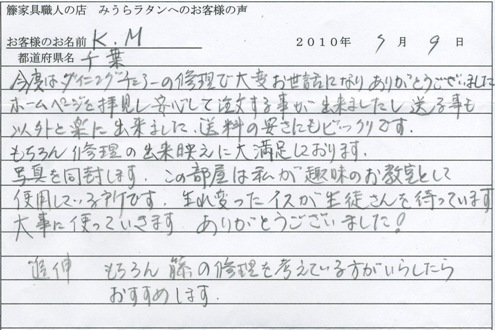 籐家具職人の店 みうらラタンへのお客様の声
お客様のお名前 K.M 2010年 5月 9日
都道府県名 千葉
今度はダイニングチェアーの修理で大変お世話になりありがとうございました
ホームページを拝見し安心して注文する事が出来ましたし送る事も
以外と楽に出来ました。送料の安さにもビックリです.
もちろん修理の出来映えに大満足しております.
写真を同封します。この部屋は私が趣味のお教室として
使用している所です。生れ変ったイスが生徒さんを待っています
大事に使っていきます。ありがとうございました!
追伸 もちろん籐の修理を考えている方がいらしたら
おすすめします.